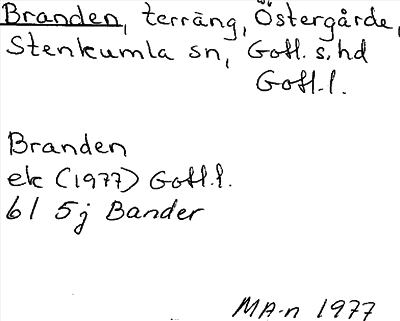 Branden, terräng, Östergårde,
Stenkumla sn, Gotl. s. hd
Gotl. l.
Branden
ek (1977) Gotl. l.
6I 5j Bander
MA-n 1977